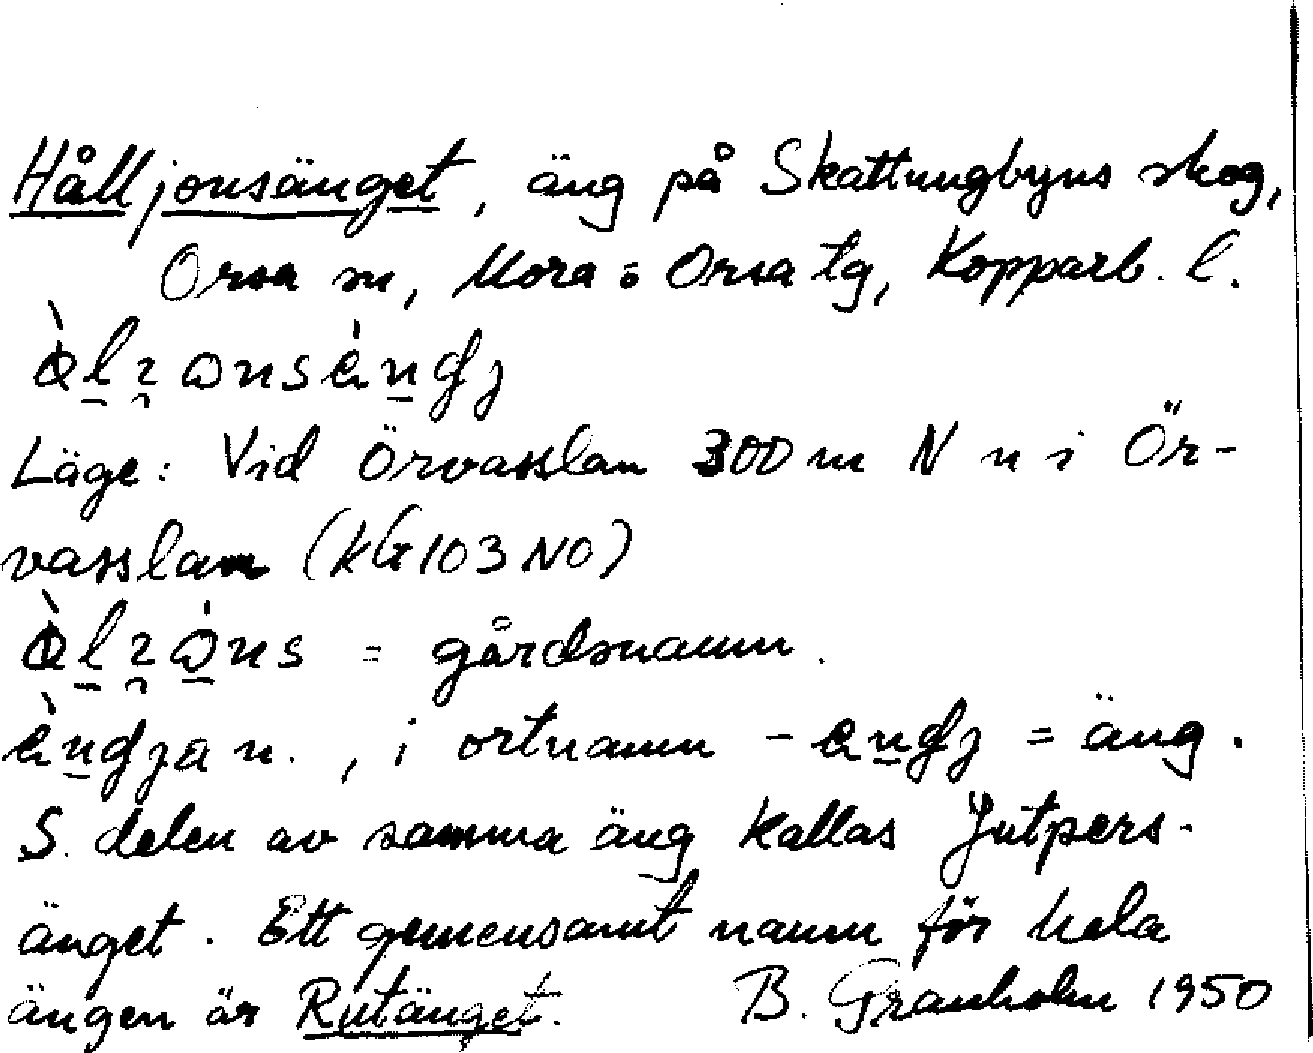 Hålljonsänget, äng på Skattungbyns skog,
Orsa sn, Mora o Orsa tg, Kopparb. l.
Läge: Vid Örvasslan 300 m N n i Ör-
vasslan (KG 103 NO)
= gårdsnamn.
n., i ortnamn = äng.
S. delen av samma äng kallas Jutpers-
änget. Ett gemensamt namn för hela
ängen är Rutänget. B. Granholm 1950